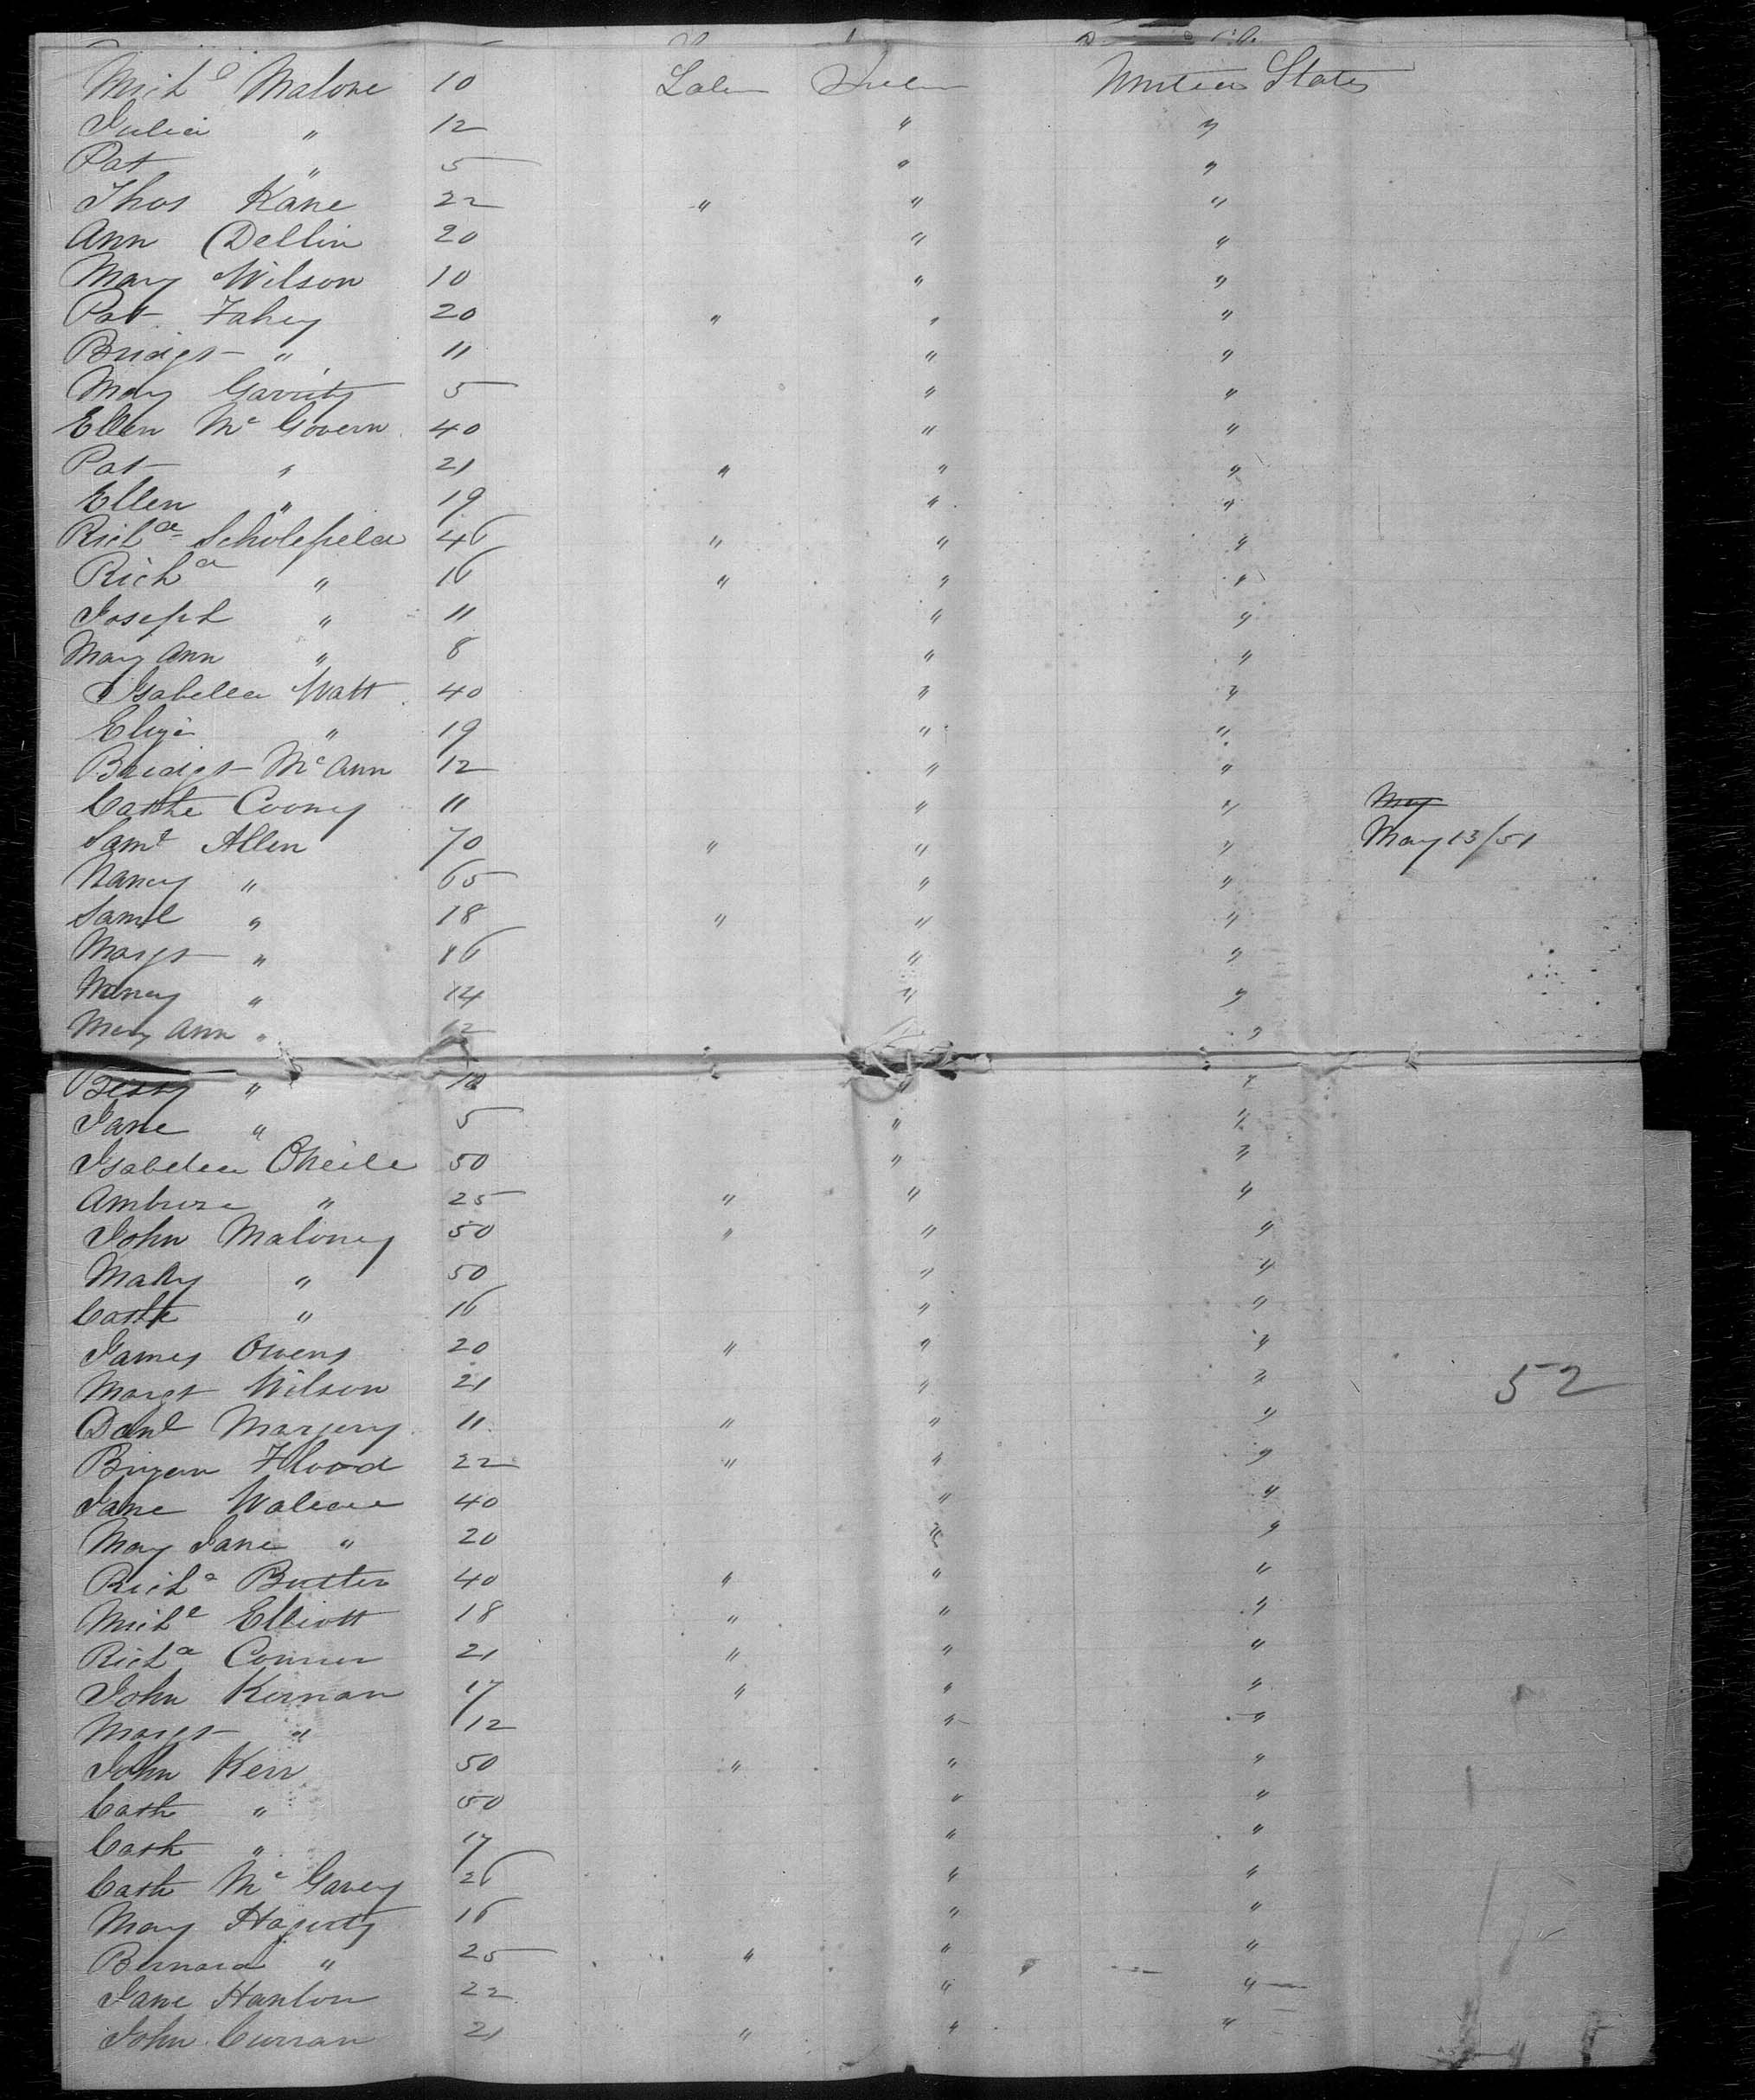 Mich^l Malone 10 Labr Irelan United States
Julia " 12 " "
Pat " 5 " "
Thos Kane 22 " " "
Ann Dellin 20 " "
Mary Wilson 10 " "
Pat Fahey 20 " " "
Bridgt " 11 " "
Mary Garrity 5 " "
Ellen Mc Govern 40 " "
Pat " 21 " " "
Ellen " 19 " "
Rich^d Scholefield 46 " " "
Rich^d " 16 " " "
Joseph " 11 " "
Mary Ann " 8 " "
Isabella Watt 40 " "
Eliza " 19 " "
Bridgt Mc Ann 12 " "
Cathe Cooney 11 " " May
Saml Allen 70 " " " May 13/51
Nancy " 65 " "
Saml " 18 " " "
Margt " 16 " "
" 14 " "
Mary Ann " 12 "
Betsy " 10 " "
Jane " 5 " "
Isabella Oneile 50 " "
Ambrose " 25 " " "
John Maloney 50 " " "
Mary " 50 " "
Cathe " 16 " "
James Owens 20 " " "
Margt Wilson 21 " " 52
Danl Margery 11 " " "
Bryan Flood 22 " " "
Jane Wallace 40 " "
Mary Jane " 20 " "
Rich^d Butler 40 " " "
Mich^l Elliott 18 " " "
Rich^d Connor 21 " " "
John Kernan 17 " " "
Margt " 12 " "
John Kerr 50 " " "
Cath " 50 " "
Cath " 17 " "
Cath Mc Gavey 26 " "
Mary Hagerty 16 " "
Bernard " 25 " " "
Jane Hanlon 22 " "
John Curran 21 " " "